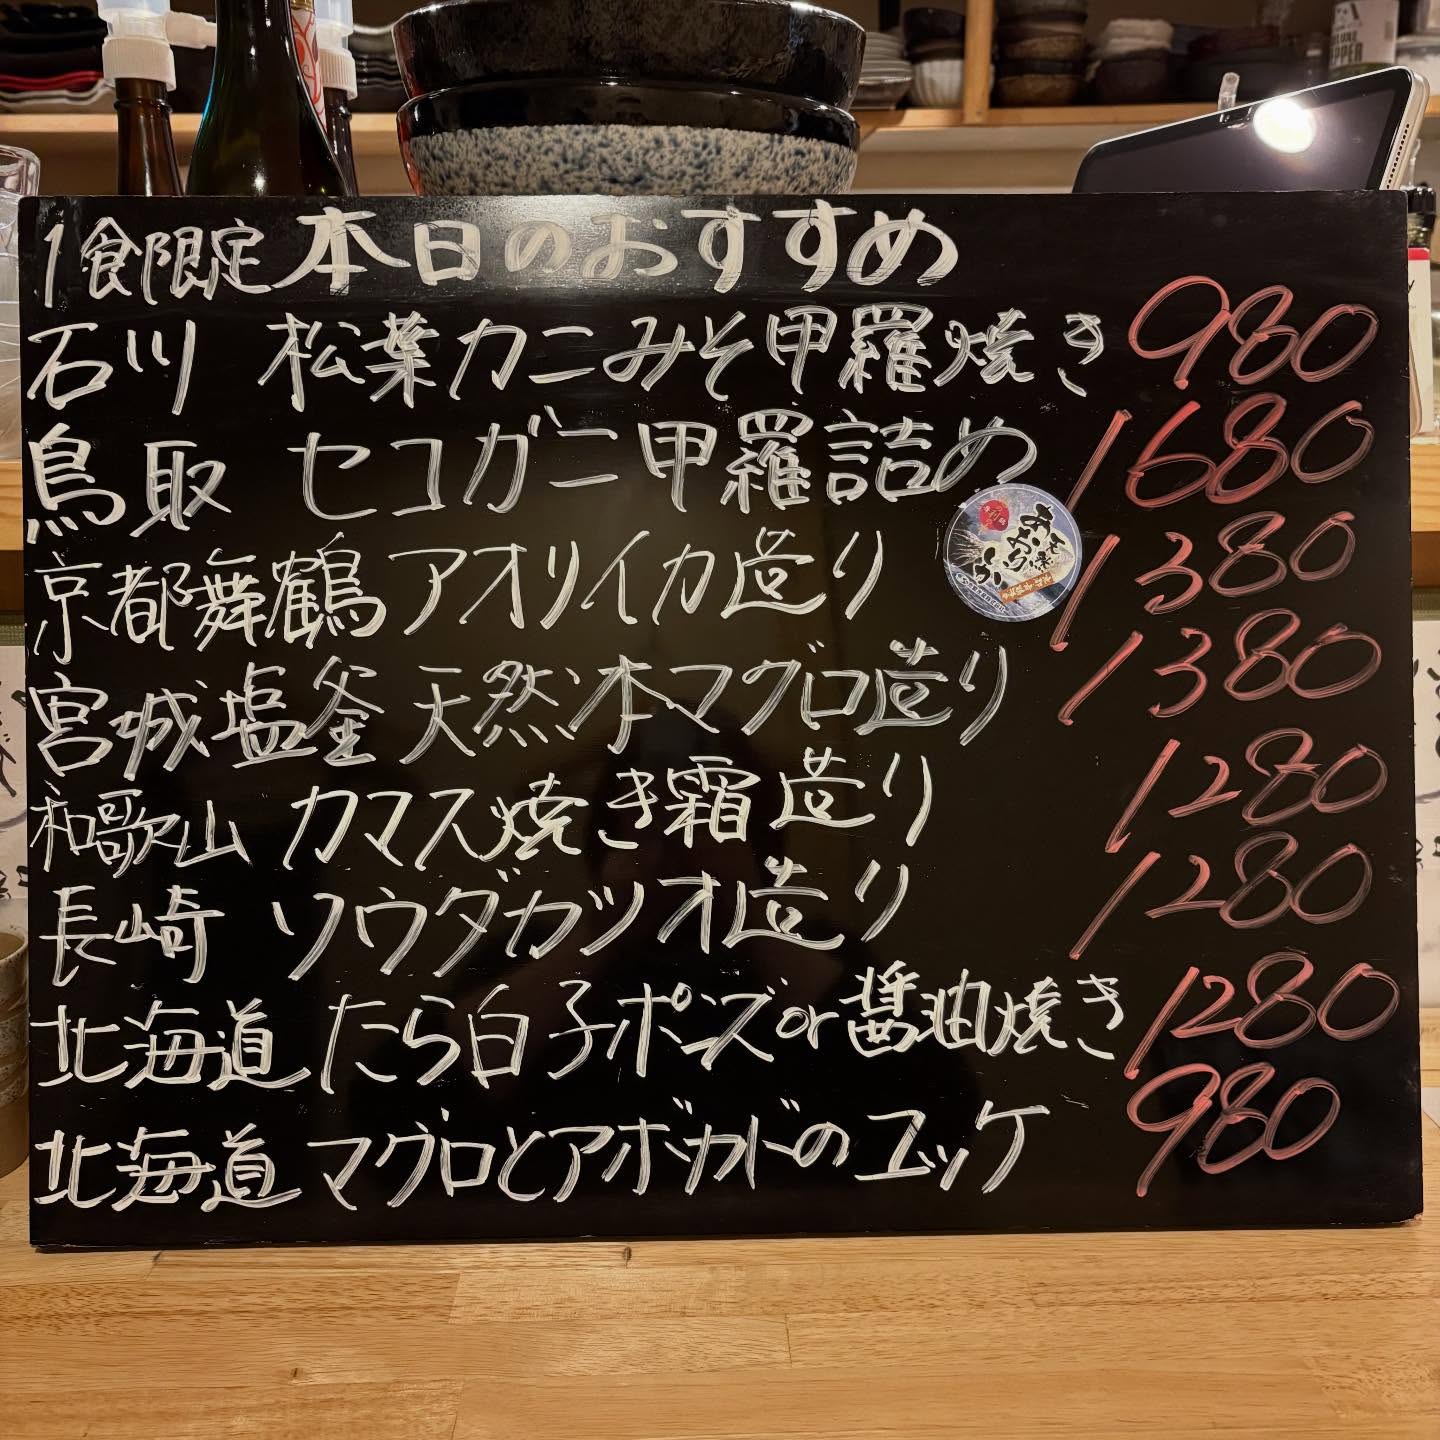 1食限定 本日のおすすめ
石川 松葉カニみそ甲羅焼き 980
鳥取 セコガニ甲羅詰め 1680
京都舞鶴 アオリイカ造り 1380
宮城塩釜 天然本マグロ造り 1380
和歌山 カマス焼き霜造り 1280
長崎 ソウダガツオ造り 1280
北海道 たら白子ポンズor醤油焼き 1280
北海道 マグロとアボカドのユッケ 980